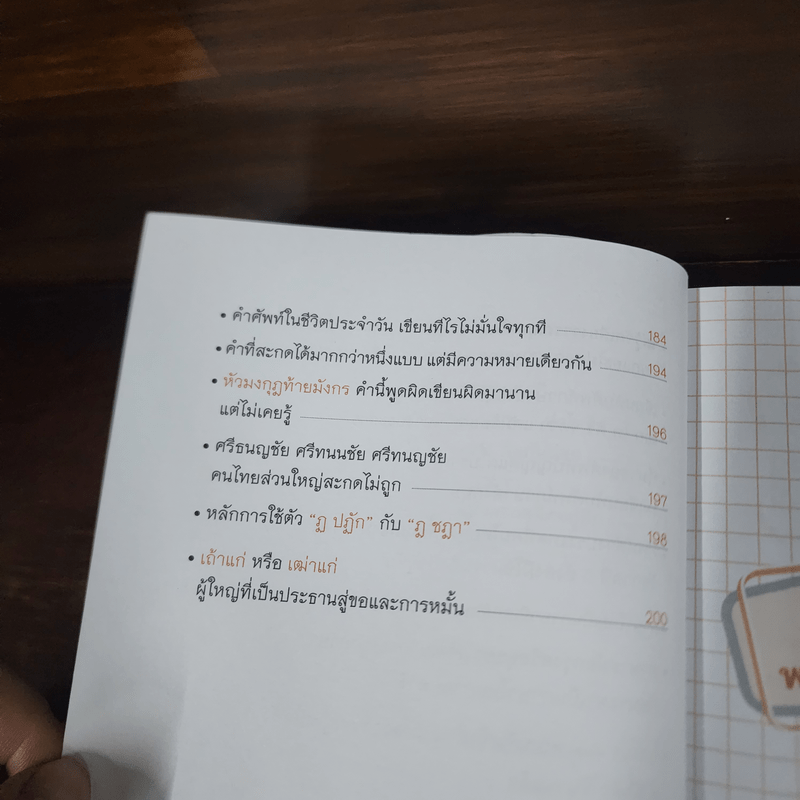 • คำศัพท์ในชีวิตประจำวัน เขียนทีไรไม่มั่นใจทุกที 184
• คำที่สะกดได้มากกว่าหนึ่งแบบ แต่มีความหมายเดียวกัน 194
• หัวมงกุฎท้ายมังกร คำนี้พูดผิดเขียนผิดมานาน
แต่ไม่เคยรู้ 196
• ศรีธนญชัย ศรีทนนชัย ศรีทนญชัย
คนไทยส่วนใหญ่สะกดไม่ถูก 197
• หลักการใช้ตัว “ฏ ปฏัก” กับ “ฎ ชฎา” 198
• เถ้าแก่ หรือ เฒ่าแก่
ผู้ใหญ่ที่เป็นประธานสู่ขอและการหมั้น 200